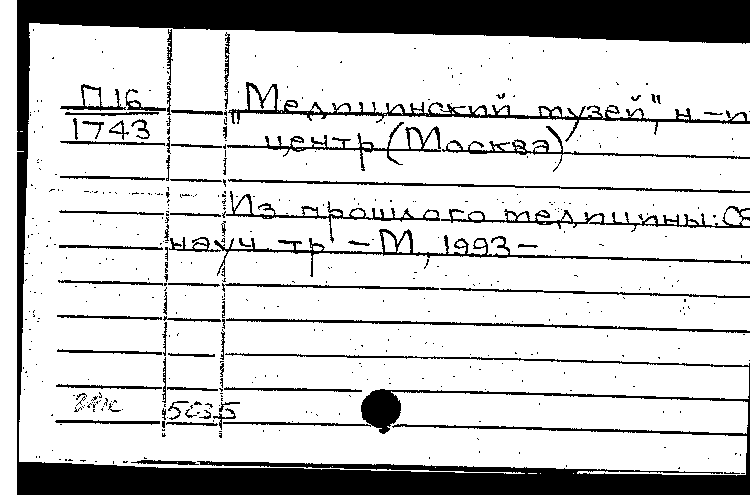 П16
1743
"Медицинский музей", н.-и
центр (Москва)
Из прошлого медицины: Сб
науч тр – М, 1993 –
5035